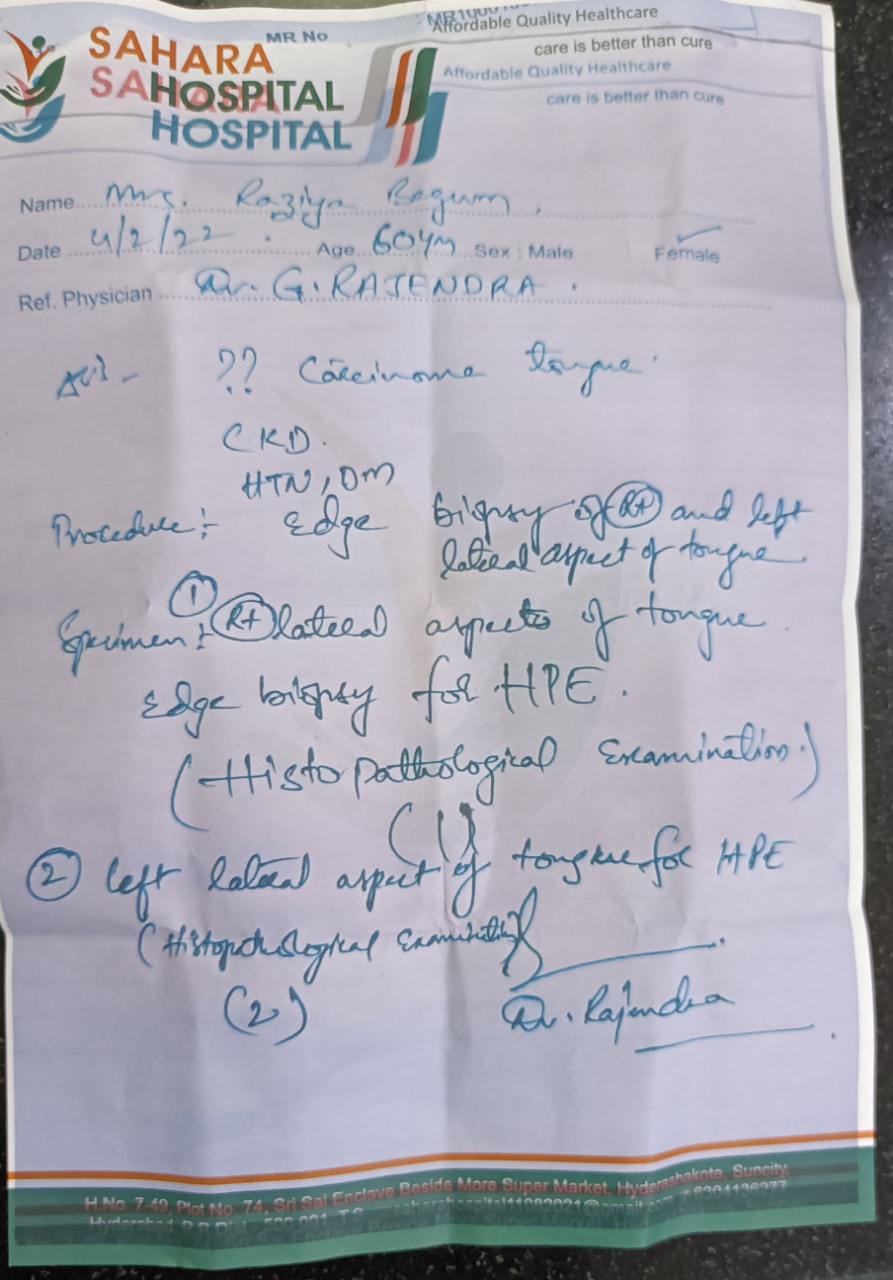 MR No
Affordable Quality Healthcare
SAHARA
care is better than cure
SAHARA
HOSPITAL
Affordable Quality Healthcare
HOSPITAL
care is better than cure
Name Mrs. Raziya Begum.
Date 4/2/22. Age 60ym Sex : Male Female
Ref. Physician Dr. G. RAJENDRA.
?? Carcinoma tongue
CKD.
HTN, DM
Procedure: Edge biopsy of Rt and left
lateral aspect of tongue
①
Specimen: Rt lateral aspects of tongue.
Edge biopsy for HPE.
(Histopathological Examination.)
(1)
② left lateral aspect of tongue for HPE
(Histopathological Examination)
(2)
Dr. Rajendra
H.No. 7-49, Plot No. 74, Sri Sai Enclave Beside More Super Market, Hydershakote, Suncity,
Hyderabad